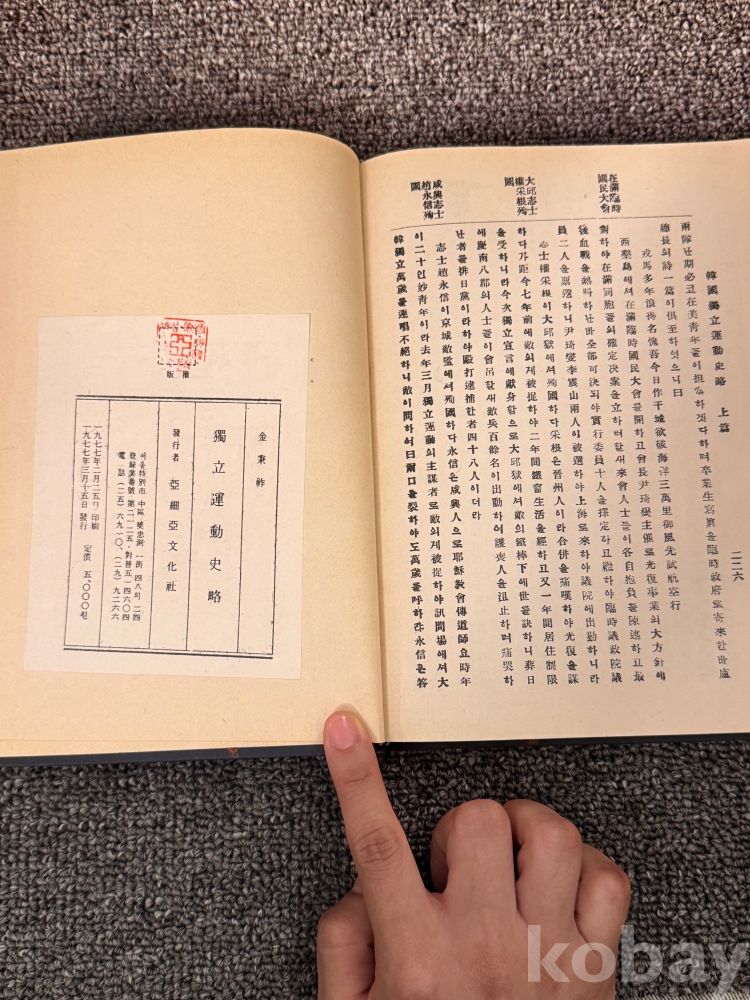 韓國獨立運動史略 上篇
二二六
兩隊난期必코在美靑年들이担當하겟다하며卒業生寫眞을臨時政府로寄來한바盧
總長의詩一篇이俱至하엿으니曰
戎馬多年浪得名愧吾今日作干城欲破海洋三萬里御風先試航空行
在滿臨時
國民大會
西墾島에셔在滿臨時國民大會를開하고會長尹琦燮主催로光復事業의大方針에
對하야在滿同胞들의確定決案을立하려할새來會人士들이各自抱負를陳述하고最
後血戰을絶叫하난바全部可決되야實行委員十人을擇定하고繼하야臨時議政院議
員二人을票選하니尹琦燮李震山兩人이被選하야上海로來하야議院에出勤하니라
大邱志士
權寀根殉
國
志士權寀根이大邱獄에셔殉國하다寀根은晉州人이라合併을痛嘆하야光復을謀
하다가距今七年前에敵의게被捉하야二年間鐵窗生活을經하고又一年間居住制限
을受하니라今次獨立宣言에獻身함으로大邱獄에셔敵의鐵棒下에世를訣하니葬日
에慶南八郡의人士들이會吊할새敵兵百餘名이出動하여護喪人을沮止하며痛哭하
난者를排日黨이라하야毆打逮捕한者四十八人이더라
咸興志士
趙永信殉
國
志士趙永信이京城敵監에셔殉國하다永信은咸興人으로耶穌敎會傳道師요時年
이二十인妙靑年이라去年三月獨立運動의主謀者로敵의게被捉하야訊問場에셔大
韓獨立萬歲를連唱不絶하니敵이問하여曰爾口를裂하야도萬歲를呼하랴永信은答
版權
金秉祚
獨立運動史略
發行者 亞細亞文化社
서울特別市 中區 奬忠洞 一街 四八의 二四
登錄業番號 第二‧一二五, 對替五一四六〇四
電話 (二五) 六九一〇, (二九) 九二六六
一九七七年二月二五日 印刷
一九七七年三月十五日 發行
定價 五,〇〇〇원
kobay